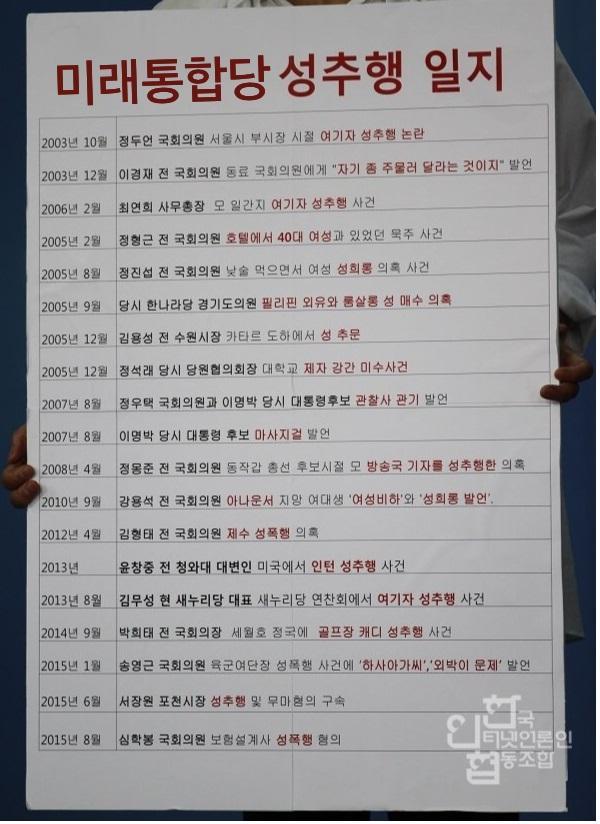 미래통합당 성추행 일지
2003년 10월 정두언 국회의원 서울시 부시장 시절 여기자 성추행 논란
2003년 12월 이경재 전 국회의원 동료 국회의원에게 "자기 좀 주물러 달라는 것이지" 발언
2006년 2월 최연희 사무총장 모 일간지 여기자 성추행 사건
2005년 2월 정형근 전 국회의원 호텔에서 40대 여성과 있었던 묵주 사건
2005년 8월 정진섭 전 국회의원 낮술 먹으면서 여성 성희롱 의혹 사건
2005년 9월 당시 한나라당 경기도의원 필리핀 외유와 룸살롱 성 매수 의혹
2005년 12월 김용성 전 수원시장 카타르 도하에서 성 추문
2005년 12월 정석래 당시 당원협의회장 대학교 제자 강간 미수사건
2007년 8월 정우택 국회의원과 이명박 당시 대통령후보 관찰사 관기 발언
2007년 8월 이명박 당시 대통령 후보 마사지걸 발언
2008년 4월 정몽준 전 국회의원 동작갑 총선 후보시절 모 방송국 기자를 성추행한 의혹
2010년 9월 강용석 전 국회의원 아나운서 지망 여대생 '여성비하'와 '성희롱 발언'.
2012년 4월 김형태 전 국회의원 제수 성폭행 의혹
2013년 윤창중 전 청와대 대변인 미국에서 인턴 성추행 사건
2013년 8월 김무성 현 새누리당 대표 새누리당 연찬회에서 여기자 성추행 사건
2014년 9월 박희태 전 국회의장 세월호 정국에 골프장 캐디 성추행 사건
2015년 1월 송영근 국회의원 육군여단장 성폭행 사건에 '하사아가씨','외박이 문제' 발언
2015년 6월 서장원 포천시장 성추행 및 무마혐의 구속
2015년 8월 심학봉 국회의원 보험설계사 성폭행 혐의
한국
인터넷언론인
협동조합